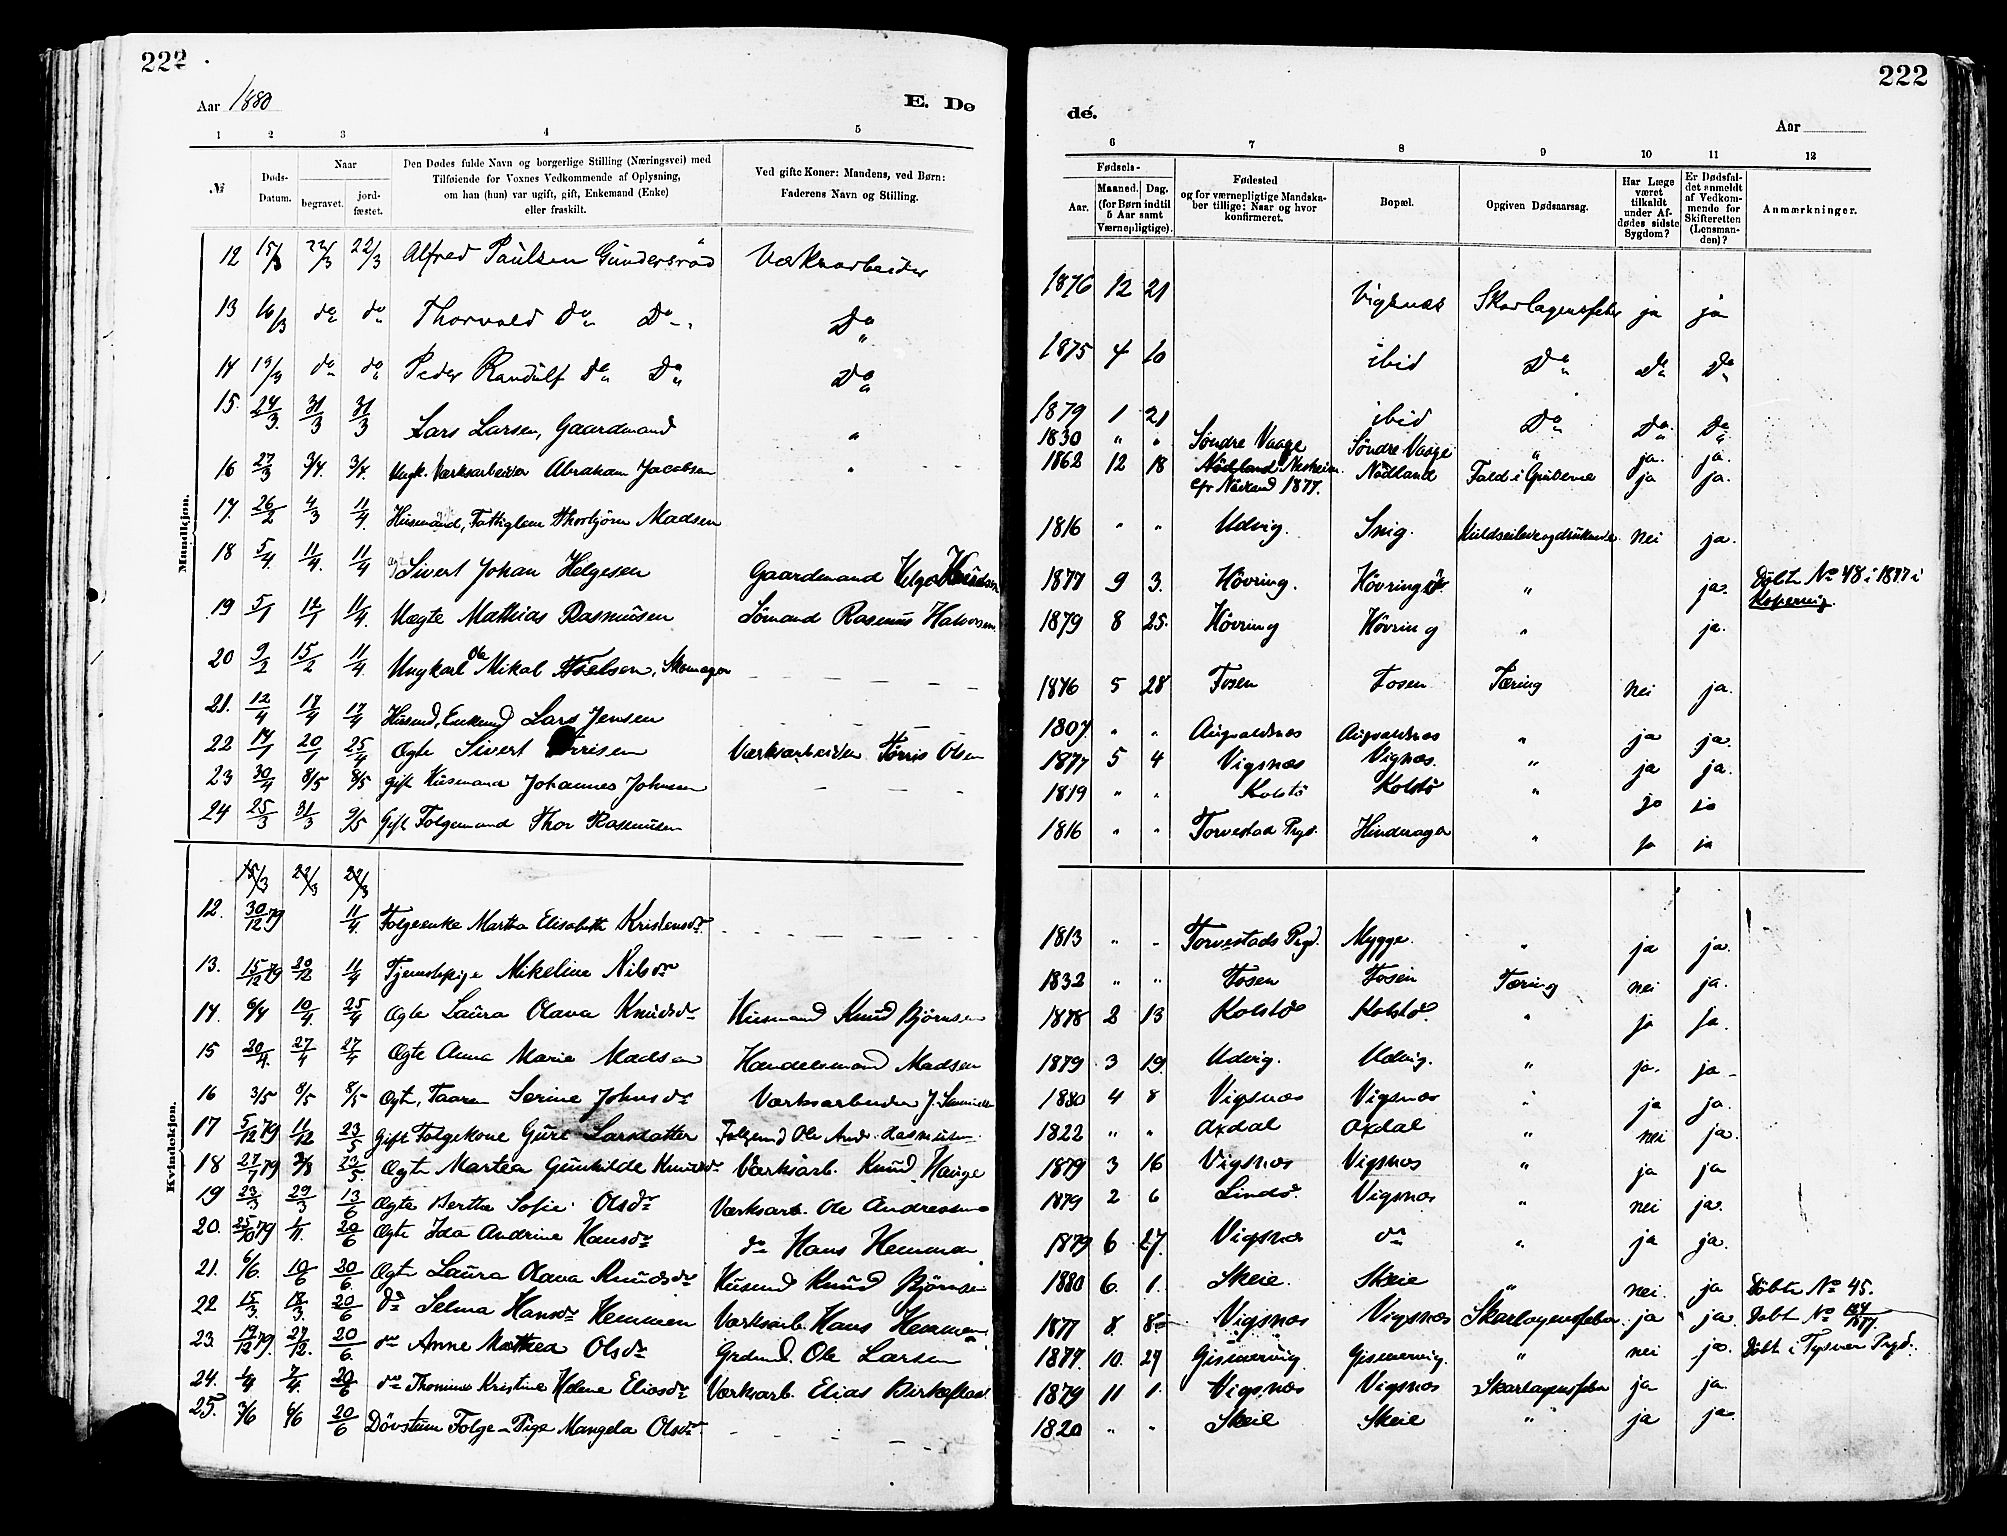 222
222
Aar 1880
E. Do
dé.
Aar
1 2 3 4 5
6 7 8 9 10 11 12
№
Døds-Datum.
Naar
begravet.
jord-fæstet.
Den Dødes fulde Navn og borgerlige Stilling (Næringsvei) med
Tilføiende for Voxnes Vedkommende af Oplysning,
om han (hun) var ugift, gift, Enkemand (Enke)
eller fraskilt.
Ved gifte Koner: Mandens, ved Børn:
Faderens Navn og Stilling.
Fødsels-
Aar.
Maaned. Dag.
(for Børn indtil
5 Aar samt
Værnepligtige).
Fødested
og for værnepligtige Mandska-
ber tillige: Naar og hvor
konfirmeret.
Bopæl.
Opgiven Dødsaarsag.
Har Læge
været
tilkaldt
under Af-
dødes sidste
Sygdom?
Er Dødsfal-
det anmeldt
af Vedkom-
mende for
Skifteretten
(Lensman-
den)?
Anmærkninger.
Mandkjøn.
12 15/3 22/3 22/3 Alfred Paulsen Gundersrød Værksarbeider 1876 12 21 Vigsnæs Skarlagensfeber ja ja
13 16/3 do do Thorvald do Do Do 1875 4 10 ibid Do Do Do
14 19/3 do do Peder Randulf do Do Do 1879 1 21 ibid Do Do Do
15. 24/3 31/3 31/3 Lars Larsen, Gaardmand " 1830 " " Søndre Vaage Søndre Vaage " ja. ja.
16 27/3 3/4 3/4 Ungk. Værksarbeider Abraham Jacobsen " 1862 12 18 Nødland Nesheim Nødland Fald i Gruberne ja ja.
cfr Nødland 1877.
17. 26/2 4/3 11/4 Husmand, Fattiglem Thorbjørn Madsen 1816 " " Udvig. Snig. nei ja.
18 5/4. 11/4. 11/4 Sivert Johan Helgesen Gaardmand Helge 1877 9 3. Høvring. Høvring " ja. Døbt No 48 i 1877 i
Kopervig.
19 5/1 12/1 11/4. Uægte Mathias Rasmusen Sømand Rasmus Halvorsen 1879 8 25. Høvring Høvring " ja.
20 9/2 15/2 11/4. Ungkarl Ole Mikal , Skomager 5 28 Fosen Fosen Tæring nei ja.
21. 12/4 17/4 17/4 Husmd, Enkemd Lars Jensen 1807. " " Augvaldsnæs Augvaldsnæs " ja ja.
22 14/1 20/1 25/4 Ægte Sivert Tørrisen Værksarbeider Tørris Olsen 1877 5 4 Vigsnæs Vigsnæs. " ja ja.
23 30/4 8/5 8/5 Gift Husmand Johannes Johnsen 1819 " " Kolstø Kolstø " ja ja
24 25/3 31/3 9/5 Gift Folgemand Thor Rasmusen 1816 " " Torvestad Prgd. Hinderager " ja ja
Kvindekjøn.
15/3 22/3 22/3
12. 30/12 79 11/4. Folgeenke Martha Elisabeth Kristensdr. 1813 " " Torvestads Prgd. Mygge. " ja ja.
13. 15/12 79 20/12 11/4 Tjenestepige Mikeline Nilsdr 1832 " " Fosen Fosen Tæring nei ja.
14. 6/4 10/4. 25/4 Ægte Laura Olava Knudsdr Husmand Knud Bjørnsen 1878 2 13 Kolstø Kolstø. " ja ja.
15 20/4. 27/4 27/4 Ægte Anna Marie Madsen Handelsmand Madsen 1879 3 19 Udvig. Udvig. " ja. ja
16 3/5 8/5 8/5 Ægte, Taaren Serine Johnsdr Værksarbeider J. 1880 4 8 Vigsnæs Vigsnæs " ja ja.
17 5/12 79 11/12 23/5 Gift Folgekone Guri Larsdatter Folgemd Ole Andr. Rasmusen 1822 " " Øxdal Øxdal " nei ja.
18 27/7 79 3/8 23/5. Ægte Martea Gunhilde Knudsdr Værksarb. Knud Hauge 1879 3 16 Vigsnæs Vigsnæs " ja ja
19 23/3 29/3 13/6 Ægte Berthe Sofie Olsdr Værksarb. Ole Andreasen 1879 2 6 Lindø. Vigsnæs " nei ja.
20. 25/10 79 1/11. 20/6 Ægte Ida Andrine Hansdr do Hans Hemmen 1879 6 27. Vigsnæs do " ja ja.
21. 6/6. 10/6 20/6 Ægte Laura Olava Knudsdr Husmd Knud Bjørnsen 1880 6. 1. Skeie. Skeie " nei. ja Døbte No 45.
22 15/3 18/3. 20/6 do Selma Hansdr Hemmen Værksarb. Hans Hemmen 1877 8. 8 Vigsnæs Vigsnæs Skarlagensfeber ja ja. Døbt No
23. 19/12 79. 27/12. 20/6. do Anne Mathea Olsdr Grdmd. Ole Larsen 1877. 10. 27 Gismervig. Gismervig. " nei ja. Døbt i Tysvær Prgd.
24. 1/4 7/4. 20/6 do Thomine Kristine Helene Eliasdr Værksarb. Elias Birkeflat 1879 11 1. Vigsnæs Vigsnæs Skarlagensfeber ja ja.
25. 3/6 6/6 20/6 Døvstum Folge-Pige Mangela Olsdr. 1820 " " Skeie Skeie " ja ja.